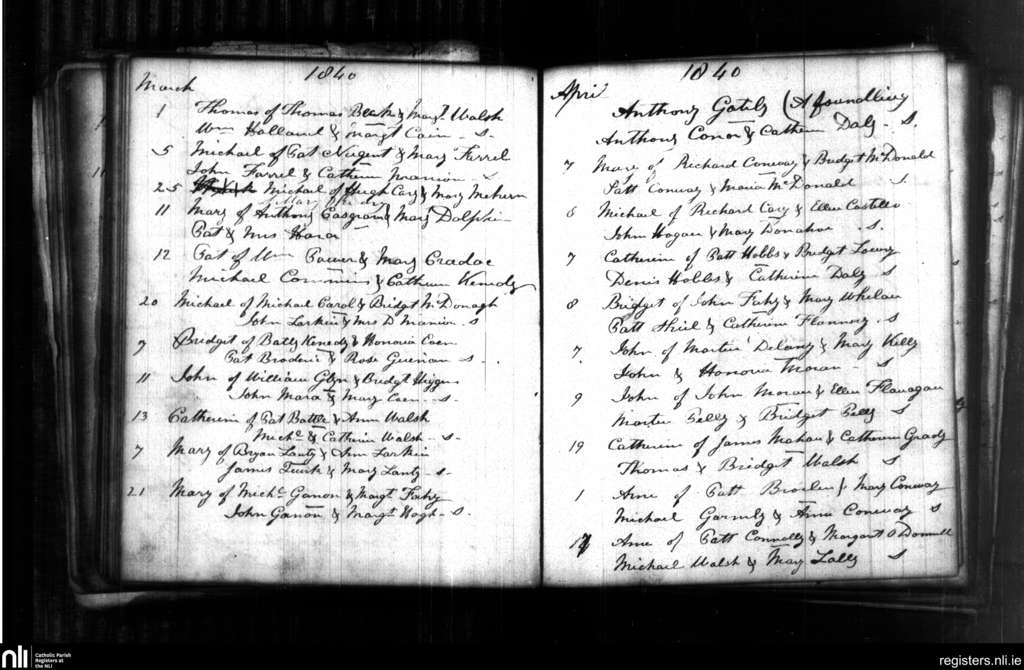 1840
March
1 Thomas of Thomas & Margt. Walsh
Wm Holland & Margt Cain - S.
5 Michael of Pat Nugent & Mary Farrel
John Farrel & Cathern Mannion - S
25 Michael of Hugh Cary & Mary
11 Mary of Anthony & Mary Dolphin
Pat & Mrs Hara
12 Pat of Wm Power & Mary Cradoc
Michael Commins & Cathern Kenedy
20 Michael of Michael Carol & Bridgt McDonagh
John Larkin & Mrs D Manion - S
9 Bridget of Batty Kenedy & Honoria Coen
Pat Broderic & Rose - S -
11 John of William Glyn & Bridgt Higgins
John Mara & Mary Coen - S.
13 Catherin of Pat Battle & Ann Walsh
Michl. & Catherin Walsh - S -
7 Mary of Bryan Lanty & Ann Larkin
James & Mary Lanty - S.
21 Mary of Michl. Ganon & Margt. Fahy
John Ganon & Margt. Hogh - S.
1840
April
Anthony Gately (A foundling
Anthony Conor & Cathern Daly - S.
7 Mary of Richard Conway & Bridget McDonald
Patt Conway & Maria McDonald S.
Michael of Richard Cary & Ellen Costello
John Hogan & Mary Donahoe - S.
7 Catherine of Patt Hobbs & Bridget Lowry
Denis Hobbs & Catherine Daly S
8 Bridget of John Fahy & Mary Whelan
Patt & Catherine Flannery - S
7 John of Martin Delany & Mary Kelly
John & Honoria Moran - S
9 John of John Moran & Ellen Flanagan
Martin & Bridget S
19 Catherine of James Mahan & Catherine Grady
Thomas & Bridget Walsh S
1 Anne of Patt & Mary Conway
Michael & Anne Conway S
Anne of Patt Connolly & Margaret O Donnell
Michael Walsh & Mary Lally S
nli
Catholic Parish
Registers at
the NLI
registers.nli.ie